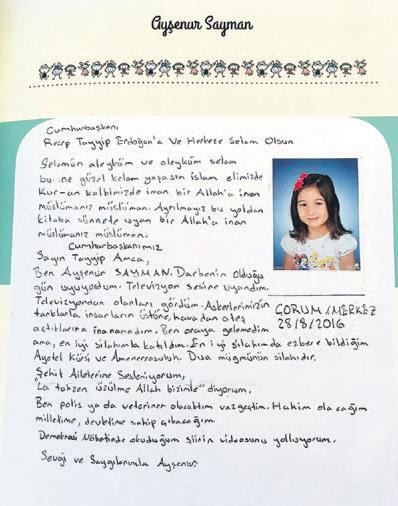 Ayşenur Sayman
Cumhurbaşkanı
Recep Tayyip Erdoğan'a Ve Herkese Selam Olsun
Selamün aleyküm ve aleyküm selam
bu ne güzel kelam yaşasın islam elimizde
Kur-an kalbimizde iman bir Allah'a inan
müslümanız müslüman. Ayrılmayız bu yoldan
kitaba sünnete uyan bir Allah'a inan
müslümanız müslüman.
Cumhurbaşkanımız
Sayın Tayyip Amca,
Ben Ayşenur SAYMAN. Darbenin olduğu
gün uyuyordum. Televizyon sesine uyandım.
Televizyondan olanları gördüm. Askerlerimizin
tanklarla insanların üstüne, havadan ateş
açtıklarına inanamadım. Ben oraya gelemedim
ama, en iyi silahımla katıldım. En iyi silahımda ezbere bildiğim
Ayetel Kürsi ve Amenerrasulü. Dua müğmünün silahıdır.
Şehit Ailelerine Sesleniyorum,
"La tahzen üzülme Allah bizimle" diyorum.
Ben polis ya da veteriner olacaktım vazgeçtim. Hakim olacağım
milletime, devletime sahip çıkacağım.
Demokrasi Nöbetinde okuduğum şiirin videosunu yolluyorum.
Sevgi ve Saygılarımla Ayşenur
ÇORUM/MERKEZ
28/8/2016